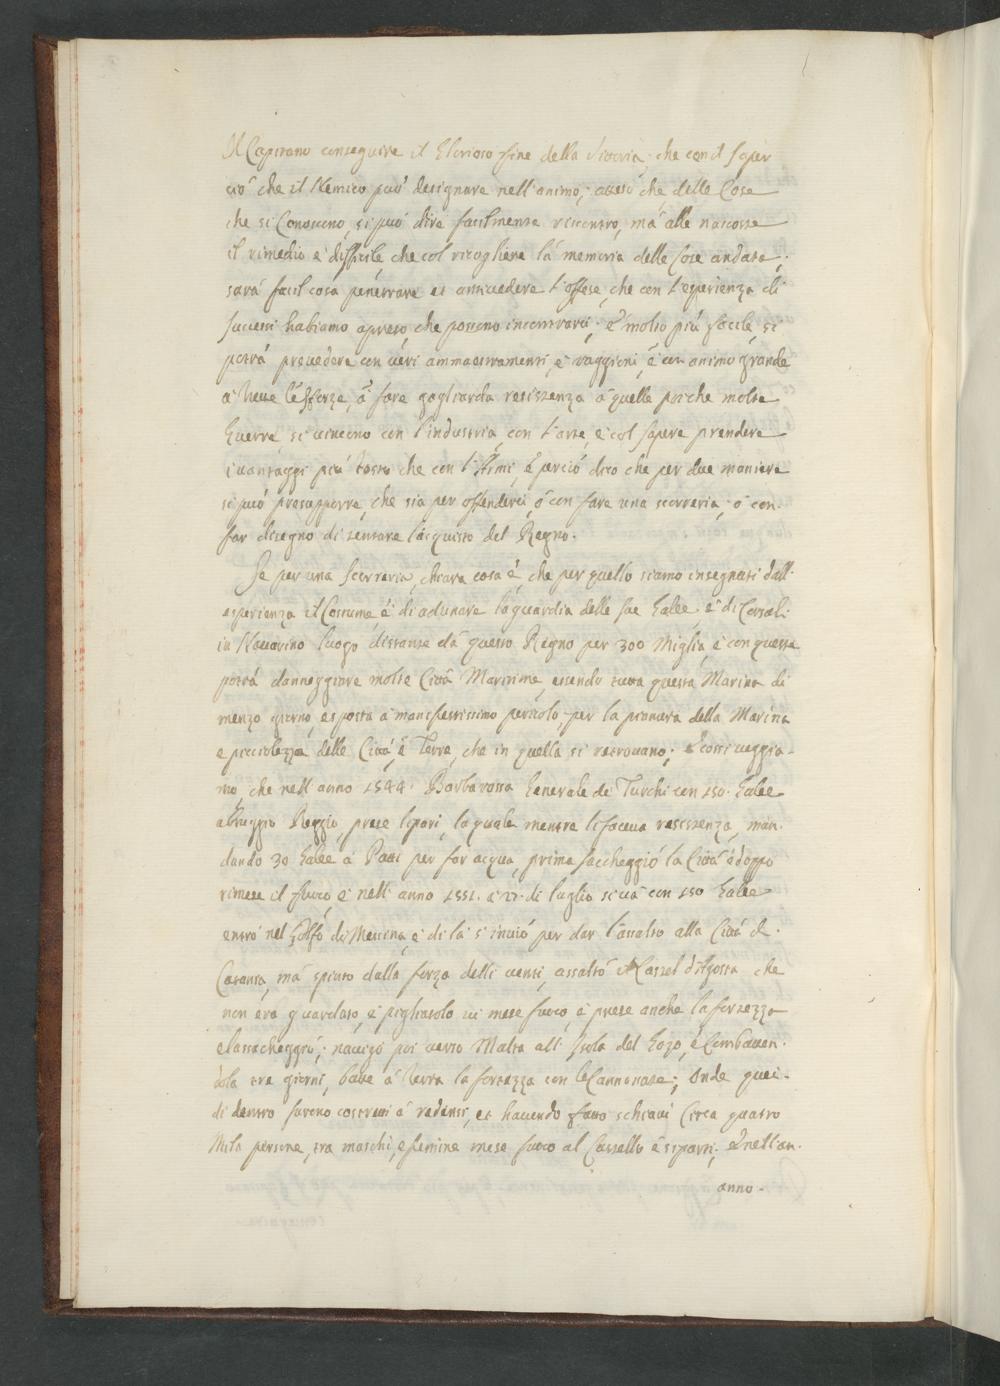 Il Capitano conseguire il Glorioso fine della Vittoria, che con il saper
ciò che il Nemico può designare nell'animo; atteso che delle Cose
che si Conoscono, si può dire facilmente riscontro, mà alle nascoste
il rimedio è difficile, che col ricogliere la memoria delle cose andate,
sarà facil cosa penetrare et antivedere l'offese, che con l'esperienza di
successi habiamo apreso, che possono incontrarci; è molto più facile, si
potrà prevedere con veri ammaestramenti, e raggioni, è con animo grande
fare gagliarda resistenza à quelle poiche molte
Guerre si vincono con l'industria, con l'arte, e col sapere prendere
i vantaggi più tosto che con l'Armi, è perciò dico che per due maniere
si può presupporre, che sia per offenderci, ò con fare una scorreria, ò con
far disegno di tentare l'acquisto del Regno.
Se per una scorreria, chiara cosa è, che per quello siamo insegnati dall'
esperienza il Costume è di adunare la guardia delle sue Galee, è di Corsali
in Navarino luogo distante dà questo Regno per 300 Miglia, è con queste
potrà danneggiare molte Città Maritime, essendo tutta questa Marina di
menzo giorno esposta à manifestissimo pericolo, per la pianura della Marina
e picciolezza delle Città, è Terre, che in quella si retrovano; è cossì veggia-
mo, che nell'anno 1544. Barbarossa Generale de Turchi con 150. Galee
abruggiò Reggio, prese Lipari, la quale mentre li faceva resistenza, man-
dando 30 Galee à Patti per far acqua, prima saccheggiò la Città è doppo
rimese il fuoco, è nell'anno 1551. à 17. di luglio con 150 Galee
entrò nel Golfo di Messina, è di là s'inviò per dar l'assalto alla Città di
Catania, mà spinto dalla forza delli venti, assaltò il Castel d'Agosta che
non era guardato, è pigliatolo vi mese fuoco, è prese anche la fortezza
e la saccheggiò; navigò poi verso Malta all'Isola del Gozo, è Combatten-
dola tre giorni, batté à terra la fortezza con le Cannonate; onde quei
di dentro furono costretti à redersi, et havendo fatto schiavi Circa quatro
Mila persone, tra maschi, e femine mese fuoco al Castello è si partì; è nell'an-
anno.